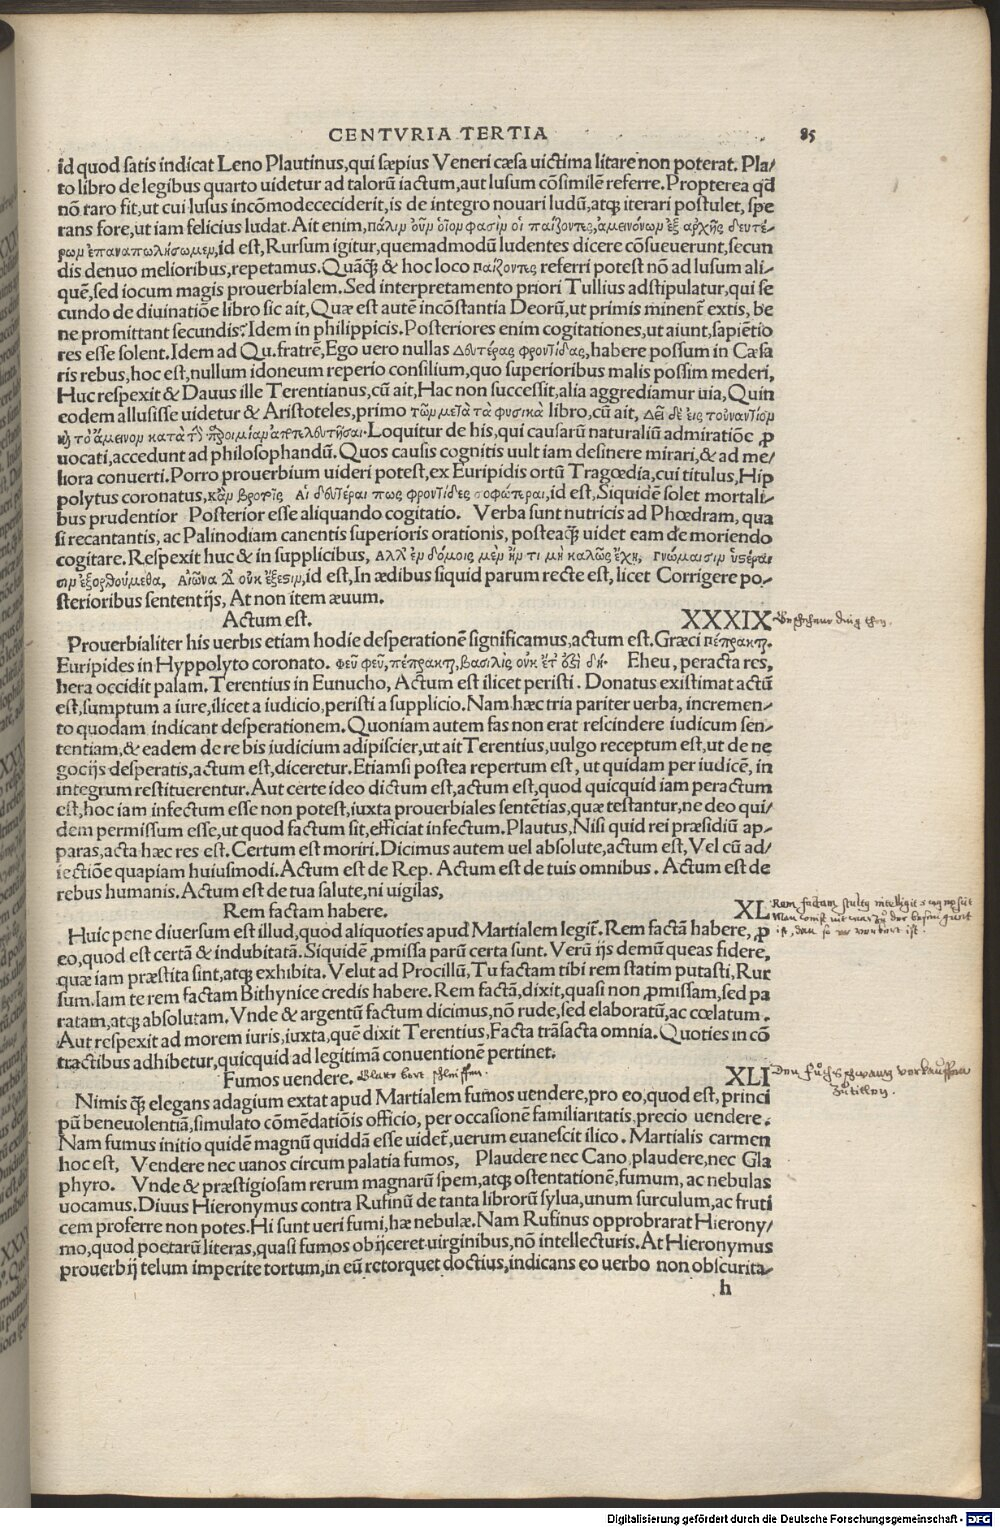 CENTVRIA TERTIA 85
id quod satis indicat Leno Plautinus,qui sæpius Veneri cæsa uictima litare non poterat. Pla/
to libro de legibus quarto uidetur ad talorũ iactum,aut lusum cõsimilẽ referre.Propterea qđ
nõ raro fit,ut cui lusus incõmodececiderit,is de integro nouari ludũ,atqʒ iterari postulet, spe
rans fore,ut iam felicius ludat.Ait enim,πάλιμ οὖμ ὁῖομ φασὶμ οἱ παίζοντες,ἀμεινόνωμ ἐξ ἀρχῆς δευτέ-
ρωμ ἐπαναπωλήσωμεμ,id est,Rursum igitur,quemadmodũ ludentes dicere cõsueuerunt,secun
dis denuo melioribus,repetamus.Quãqʒ & hoc loco παίζοντες referri potest nõ ad lusum ali-
quẽ,sed iocum magis prouerbialem.Sed interpretamento priori Tullius adstipulatur,qui se
cundo de diuinatiõe libro sic ait,Quæ est autẽ incõstantia Deorũ,ut primis minent̃ extis, be
ne promittant secundis? Idem in philippicis.Posteriores enim cogitationes,ut aiunt,sapiẽtio
res esse solent.Idem ad Qu.fratrẽ,Ego uero nullas Δευτέρας φροντίδας,habere possum in Cæsa
ris rebus,hoc est,nullum idoneum reperio consilium,quo superioribus malis possim mederi,
Huc respexit & Dauus ille Terentianus,cũ ait,Hac non successit,alia aggrediamur uia,Quin
eodem allusisse uidetur & Aristoteles,primo τῶμ μετὰ τὰ φυσικὰ libro,cũ ait, Δεῖ δὲ εἰς τοὐναντίομ
ϗ τὸ ἄμεινομ κατὰ τὴ παροιμίαμ ἀποτελευτῆσαι.Loquitur de his,qui causarũ naturaliũ admiratiõe ꝓ
uocati,accedunt ad philosophandũ.Quos causis cognitis uult iam desinere mirari,& ad me/
liora conuerti.Porro prouerbium uideri potest,ex Euripidis ortũ Tragœdia,cui titulus,Hip
polytus coronatus,κἀμ βροτοῖς Αἱ δευτέραι πως φροντίδες σοφώτεραι,id est,Siquidẽ solet mortali-
bus prudentior Posterior esse aliquando cogitatio. Verba sunt nutricis ad Phœdram, qua
si recantantis, ac Palinodiam canentis superioris orationis, posteaqʒ uidet eam de moriendo
cogitare.Respexit huc & in supplicibus, Αλλ' ἐμ δόμοις μὲμ ἤμ τι μὴ καλῶς ἔχη, γνώμαισιμ ὑστέραι
σιμ ἐξορθούμεθα, Αἰῶνα δ' οὐκ ἔξεστιμ,id est,In ædibus siquid parum recte est, licet Corrigere po-
sterioribus sententijs, At non item æuum.
Actum est. XXXIX
Prouerbialiter his uerbis etiam hodie desperationẽ significamus,actum est.Græci πέπρακται.
Euripides in Hyppolyto coronato. φεῦ φεῦ,πέπρακται,βασιλὶς οὐκ ἔτ' ἐστὶ δή. Eheu, peracta res,
hera occidit palam. Terentius in Eunucho, Actum est ilicet peristi . Donatus existimat actũ
est,sumptum a iure,ilicet a iudicio,peristi a supplicio.Nam hæc tria pariter uerba, incremen-
to quodam indicant desperationem. Quoniam autem fas non erat rescindere iudicum sen-
tentiam,& eadem de re bis iudicium adipiscier,ut ait Terentius,uulgo receptum est,ut de ne
gocijs desperatis,actum est,diceretur.Etiamsi postea repertum est, ut quidam per iudicẽ, in
integrum restituerentur.Aut certe ideo dictum est,actum est,quod quicquid iam peractum
est,hoc iam infectum esse non potest,iuxta prouerbiales sentẽtias,quæ testantur,ne deo qui/
dem permissum esse,ut quod factum sit,efficiat infectum.Plautus,Nisi quid rei præsidiũ ap-
paras,acta hæc res est.Certum est moriri.Dicimus autem uel absolute,actum est,Vel cũ ad/
iectiõe quapiam huiusmodi.Actum est de Rep. Actum est de tuis omnibus . Actum est de
rebus humanis.Actum est de tua salute,ni uigilas,
Rem factam habere. XL
Huic pene diuersum est illud,quod aliquoties apud Martialem legit̃. Rem factã habere, ꝓ
eo,quod est certã & indubitatã.Siquidẽ ꝓmissa parũ certa sunt. Verũ ijs demũ queas fidere,
quæ iam præstita sint,atqʒ exhibita.Velut ad Procillũ,Tu factam tibi rem statim putasti,Rur
sum.Iam te rem factam Bithynice credis habere.Rem factã,dixit,quasi non ꝓmissam,sed pa
ratam,atqʒ absolutam.Vnde & argentũ factum dicimus,nõ rude,sed elaboratũ,ac cœlatum.
Aut respexit ad morem iuris,iuxta,quẽ dixit Terentius,Facta trãsacta omnia.Quoties in cõ
tractibus adhibetur,quicquid ad legitimã conuentionẽ pertinet.
Fumos uendere. XLI
Nimis qʒ elegans adagium extat apud Martialem fumos uendere,pro eo,quod est, princi
pũ beneuolentiã,simulato cõmẽdatiõis officio, per occasionẽ familiaritatis,precio uendere.
Nam fumus initio quidẽ magnũ quiddã esse uidet̃,uerum euanescit ilico. Martialis carmen
hoc est, Vendere nec uanos circum palatia fumos, Plaudere nec Cano,plaudere,nec Gla
phyro. Vnde & præstigiosam rerum magnarũ spem,atqʒ ostentationẽ,fumum, ac nebulas
uocamus.Diuus Hieronymus contra Rufinũ de tanta librorũ sylua,unum surculum,ac fruti
cem proferre non potes.Hi sunt ueri fumi,hæ nebulæ.Nam Rufinus opprobrarat Hierony/
mo,quod poetarũ literas,quasi fumos obijceret uirginibus,nõ intellecturis.At Hieronymus
prouerbij telum imperite tortum,in eũ retorquet doctius,indicans eo uerbo non obscurita-
h
Digitalisierung gefördert durch die Deutsche Forschungsgemeinschaft - DFG